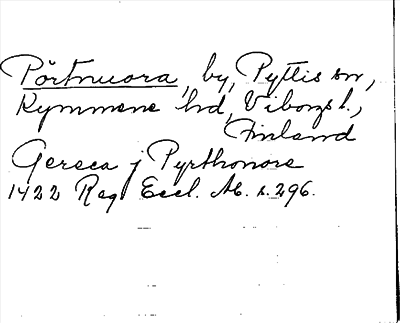 Pörtnuora, by, Pyttis sn,
Kymmene hd, Viborgs l.,
Finland
Gereca j Pyrthonore
1422 Reg Eccl. Ab. s. 296.